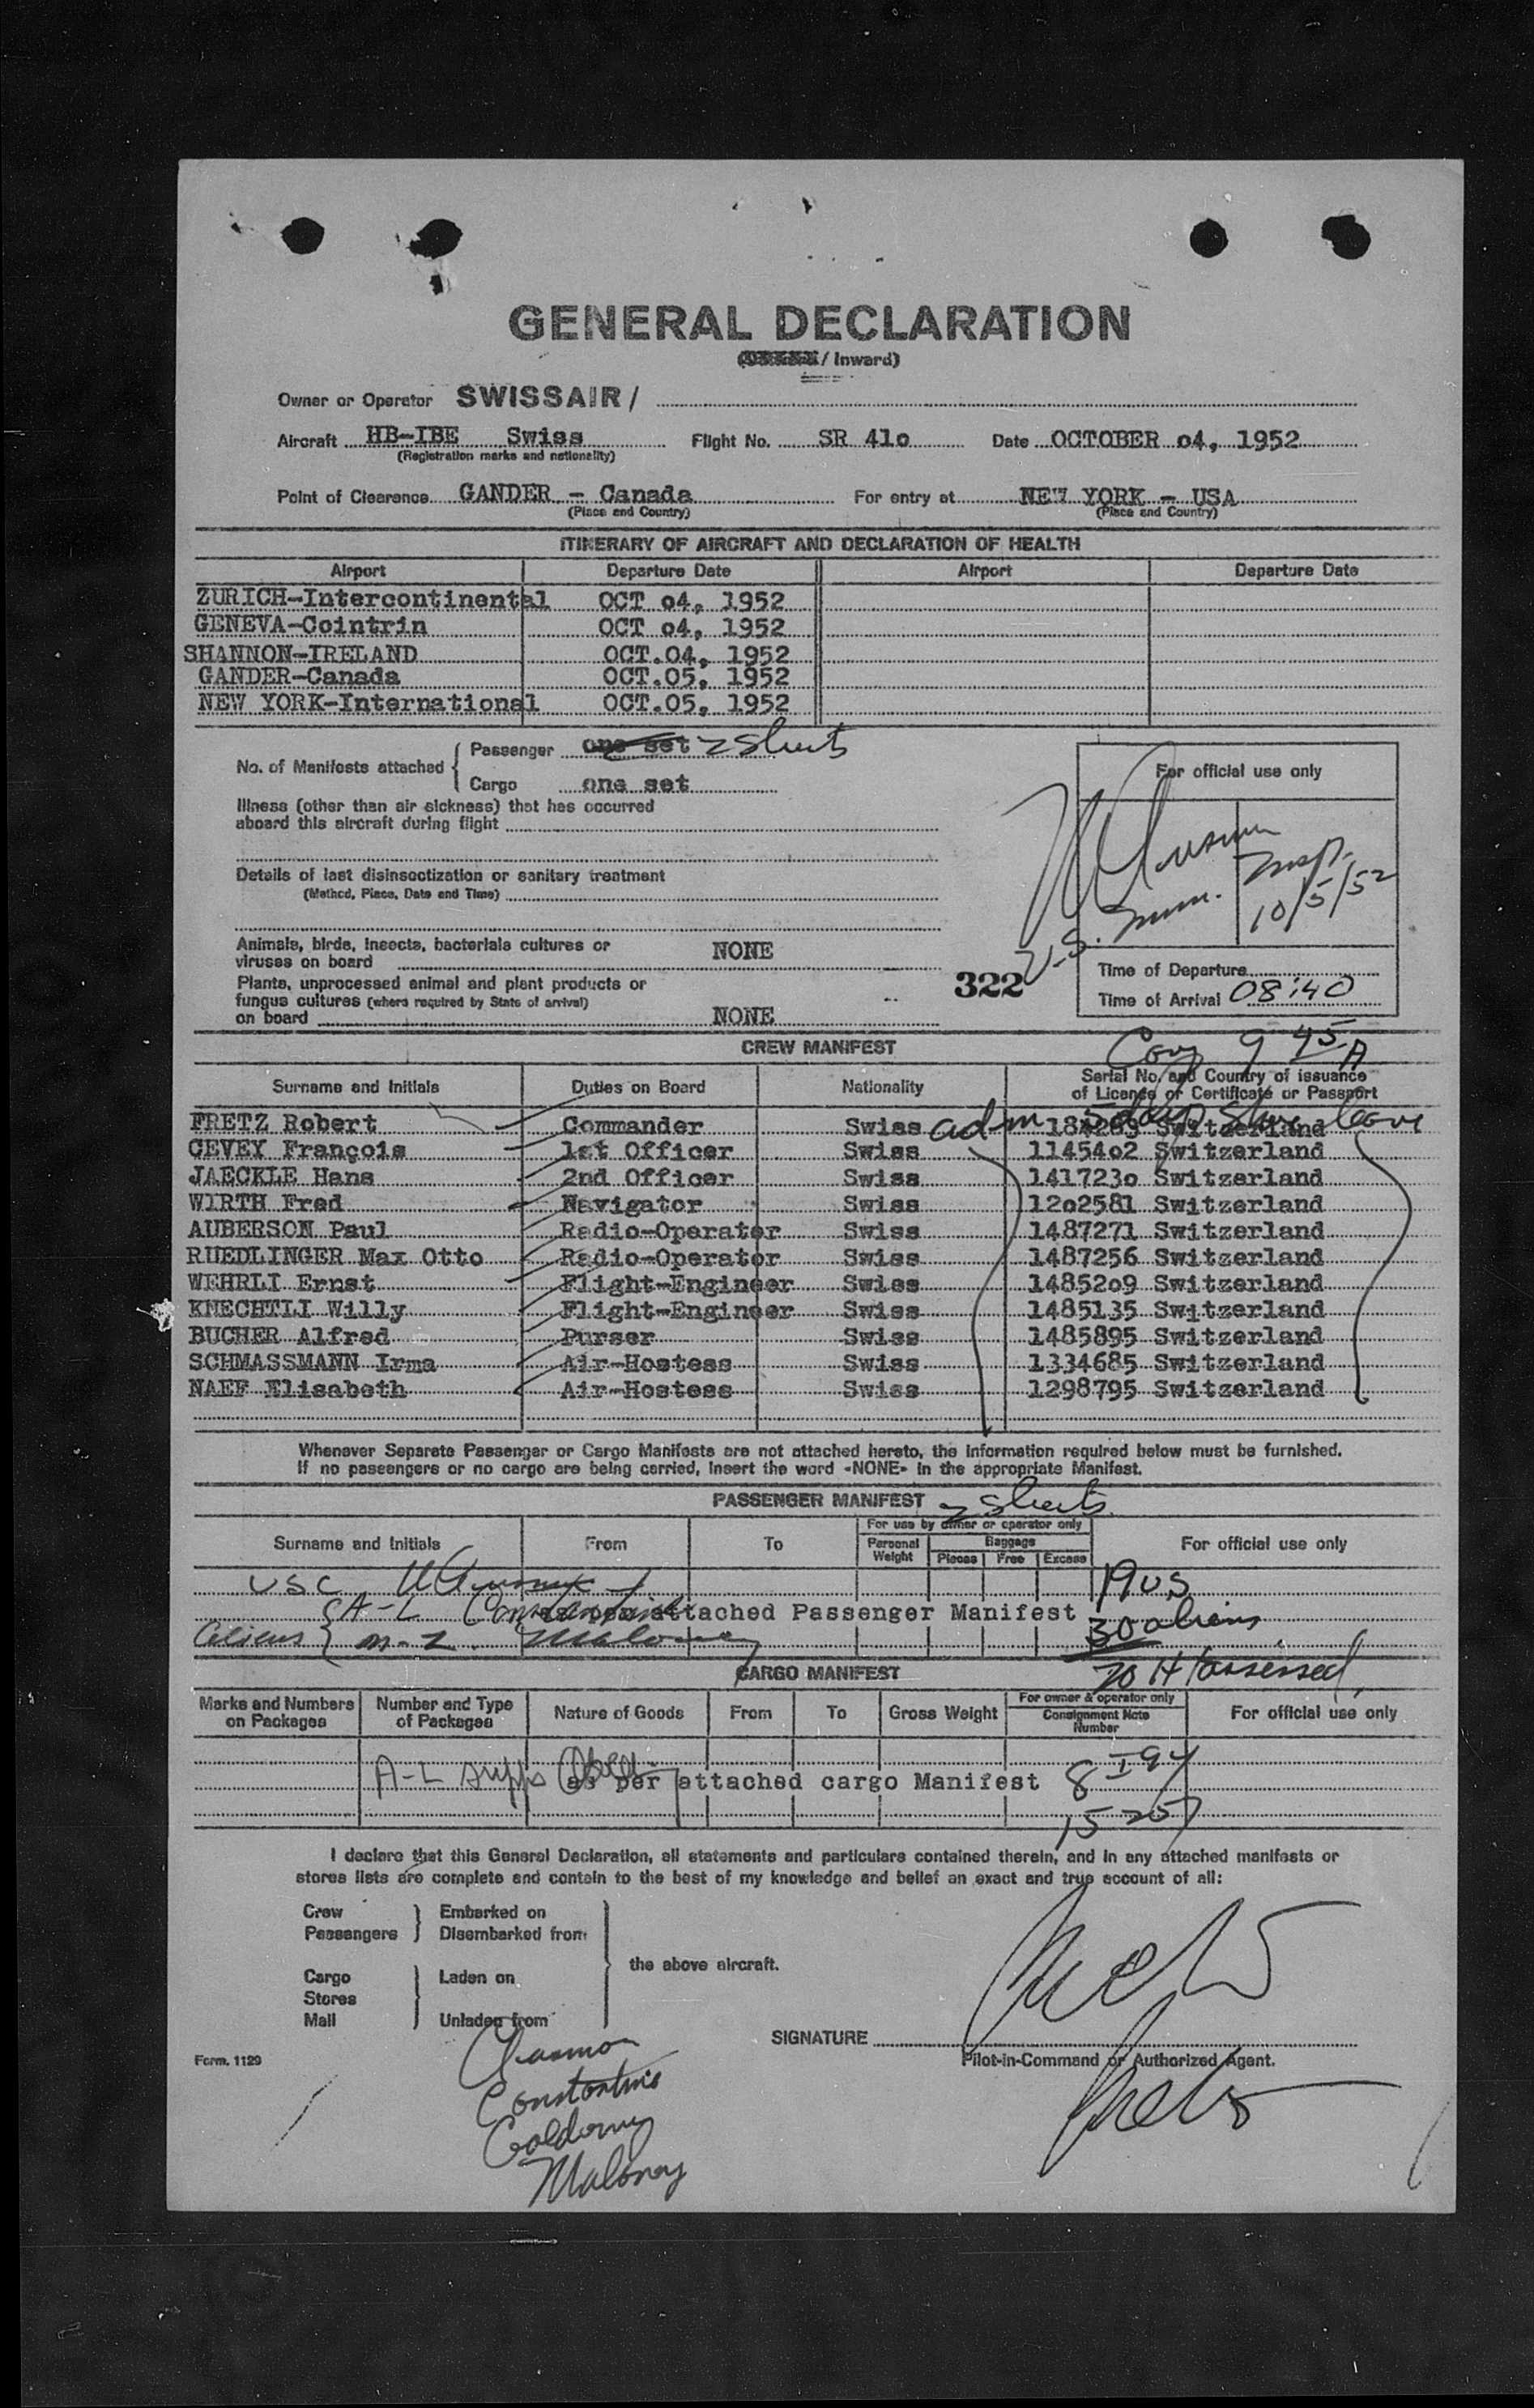 GENERAL DECLARATION
/ Inward)
Owner or Operator SWISSAIR/
Aircraft HB-IBE Swiss Flight No. SR 41o Date OCTOBER o4, 1952
(Registration marks and nationality)
Point of Clearance GANDER - Canada For entry at NEW YORK - USA
(Place and Country) (Place and Country)
ITINERARY OF AIRCRAFT AND DECLARATION OF HEALTH
Airport Departure Date Airport Departure Date
ZURICH-Intercontinental OCT o4, 1952
GENEVA-Cointrin OCT o4, 1952
SHANNON-IRELAND OCT.04, 1952
GANDER-Canada OCT.05, 1952
NEW YORK-International OCT.05, 1952
No. of Manifests attached
Passenger one set 2 sheets
Cargo one set
For official use only
Illness (other than air sickness) that has occurred
aboard this aircraft during flight
Details of last disinsectization or sanitary treatment
(Method, Place, Date and Time)
U.S. Imm. Insp.
10/5/52
Animals, birds, insects, bacterials cultures or
viruses on board NONE
Plants, unprocessed animal and plant products or
fungus cultures (where required by State of arrival)
on board NONE
322
Time of Departure
Time of Arrival 08:40
CREW MANIFEST
9 45 A
Surname and Initials Duties on Board Nationality Serial No. and Country of issuance
of Licence or Certificate or Passport
adm shore leave
FRETZ Robert Commander Swiss Switzerland
GEVEY François 1st Officer Swiss 11454o2 Switzerland
JAECKLE Hans 2nd Officer Swiss 141723o Switzerland
WIRTH Fred Navigator Swiss 12o2581 Switzerland
AUBERSON Paul Radio-Operator Swiss 1487271 Switzerland
RUEDLINGER Max Otto Radio-Operator Swiss 1487256 Switzerland
WEHRLI Ernst Flight-Engineer Swiss 14852o9 Switzerland
KNECHTLI Willy Flight-Engineer Swiss 1485135 Switzerland
BUCHER Alfred Purser Swiss 1485895 Switzerland
SCHMASSMANN Irma Air-Hostess Swiss 1334685 Switzerland
NAEF Elisabeth Air-Hostess Swiss 1298795 Switzerland
Whenever Separate Passenger or Cargo Manifests are not attached hereto, the information required below must be furnished.
If no passengers or no cargo are being carried, insert the word «NONE» in the appropriate Manifest.
PASSENGER MANIFEST 2 sheets
Surname and Initials From To For use by owner or operator only For official use only
Personal Weight Baggage
Pieces Free Excess
USC 19 US
A-L Constantine attached Passenger Manifest 30 aliens
Aliens M-Z Maloney
CARGO MANIFEST
20 Ht assessed
Marks and Numbers on Packages Number and Type of Packages Nature of Goods From To Gross Weight For owner & operator only Consignment Note Number For official use only
A-L supps as per attached cargo Manifest
I declare that this General Declaration, all statements and particulars contained therein, and in any attached manifests or
stores lists are complete and contain to the best of my knowledge and belief an exact and true account of all:
Crew
Passengers
Embarked on
Disembarked from
Cargo
Stores
Mail
Laden on
Unladen from
the above aircraft.
SIGNATURE
Form. 1129
Pilot-in-Command or Authorized Agent.
Constantine
Maloney